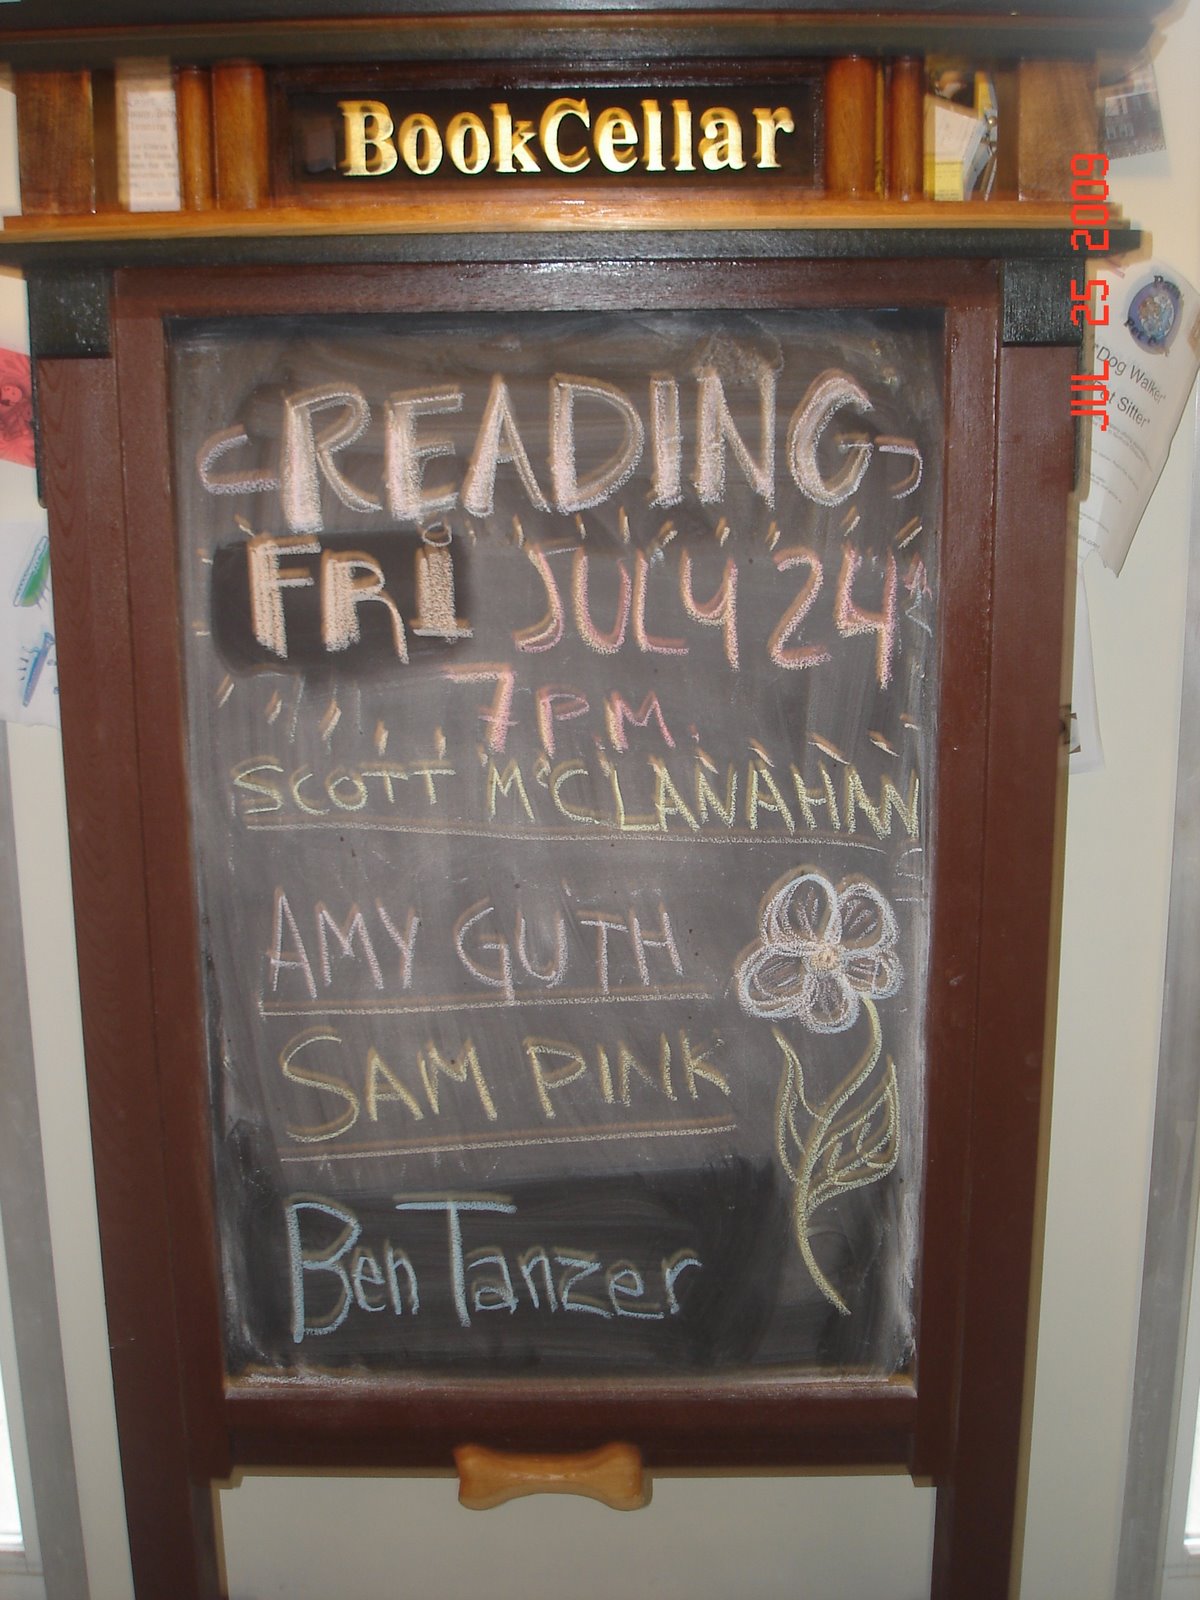 BookCellar
READING
FRI JULY 24
7 PM.
SCOTT McCLANAHAN
AMY GUTH
SAM PINK
Ben Tanzer
JUL 25 2009
"Dog Walker"
"Pet Sitter"